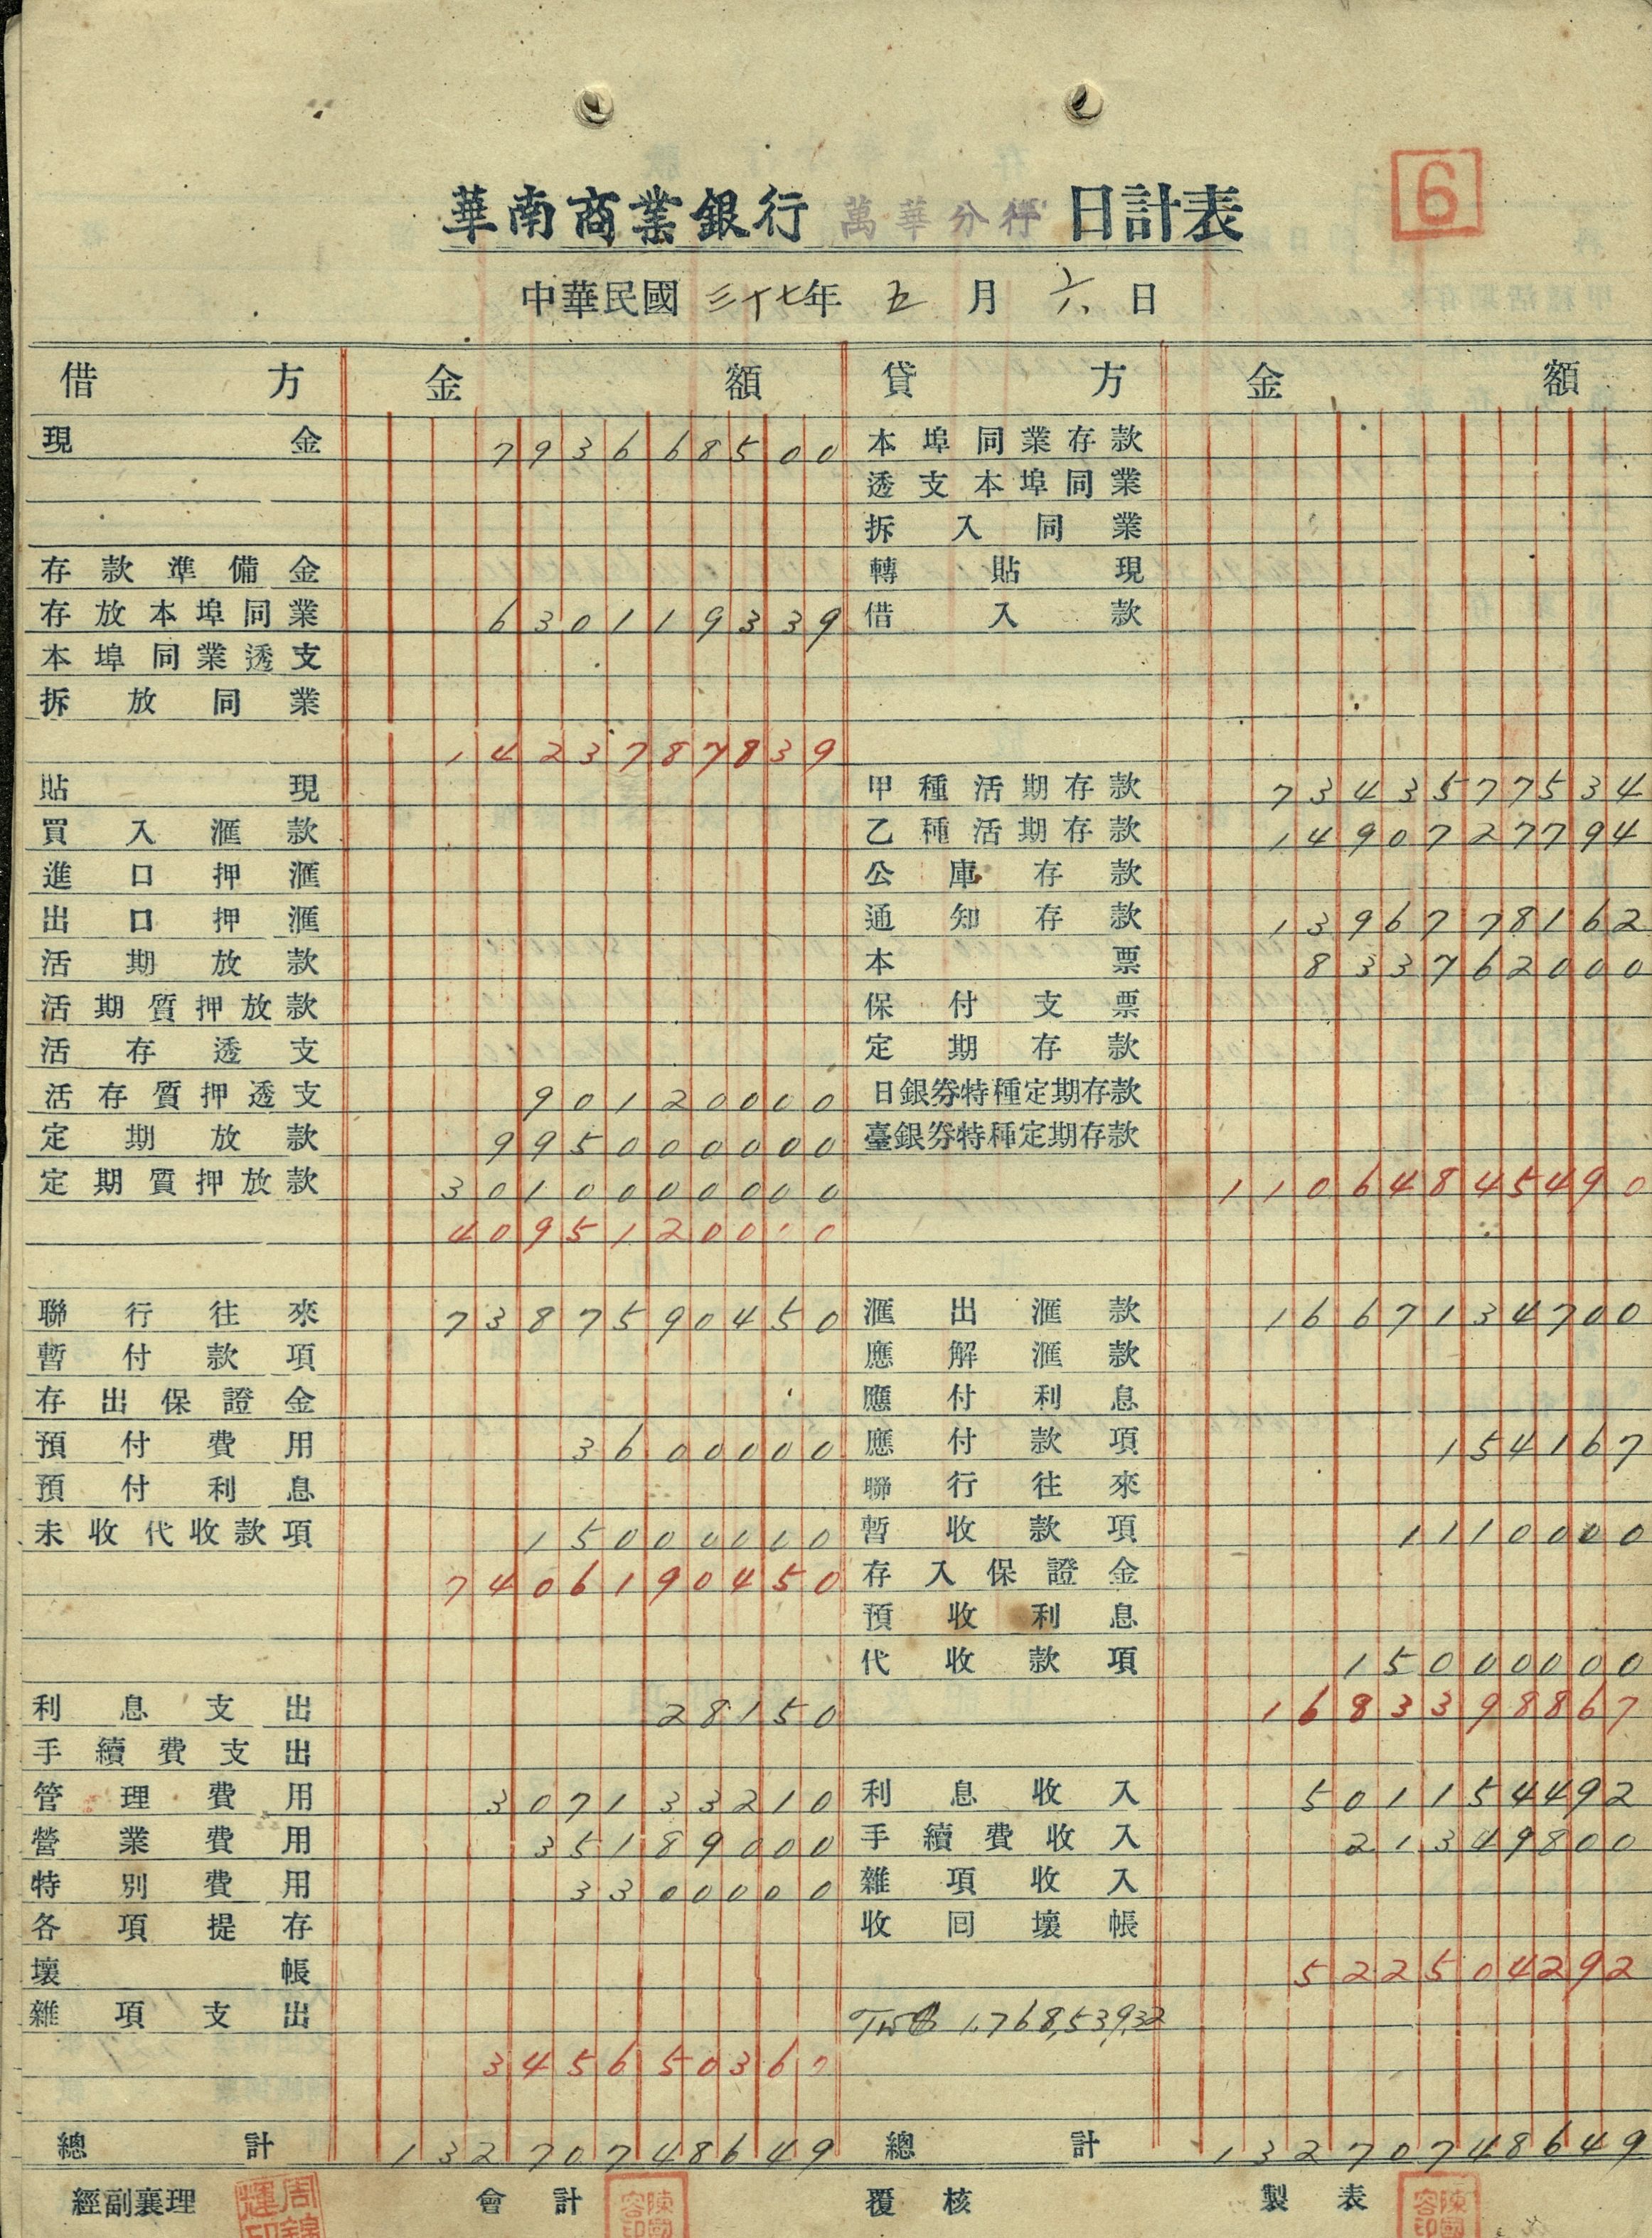 6
華南商業銀行 萬華分行 日計表
中華民國 三十七年 五 月 六 日
借方 金額 貸方 金額
現金 793668500 本埠同業存款
透支本埠同業
拆入同業
存款準備金 轉貼現
存放本埠同業 630119339 借入款
本埠同業透支
拆放同業
1423787839
貼現 甲種活期存款 7343577534
買入滙款 乙種活期存款 1490727794
進口押滙 公庫存款
出口押滙 通知存款 1396778162
活期放款 本票 833762000
活期質押放款 保付支票
活存透支 定期存款
活存質押透支 90120000 日銀券特種定期存款
定期放款 995000000 臺銀券特種定期存款
定期質押放款 3010000000 11064845490
4095120000
聯行往來 7387590450 滙出滙款 1667134700
暫付款項 應解滙款
存出保證金 應付利息
預付費用 3600000 應付款項 154167
預付利息 聯行往來
未收代收款項 15000000 暫收款項 1110000
7406190450 存入保證金
預收利息
代收款項 15000000
利息支出 28150 1683398867
手續費支出
管理費用 307133210 利息收入 501154492
營業費用 35189000 手續費收入 21349800
特別費用 3300000 雜項收入
各項提存 收回壞帳
壞帳 522504292
雜項支出 1,768,539,32
345650360
總計 13270748649 總計 13270748649
經副襄理 會計 覆核 製表